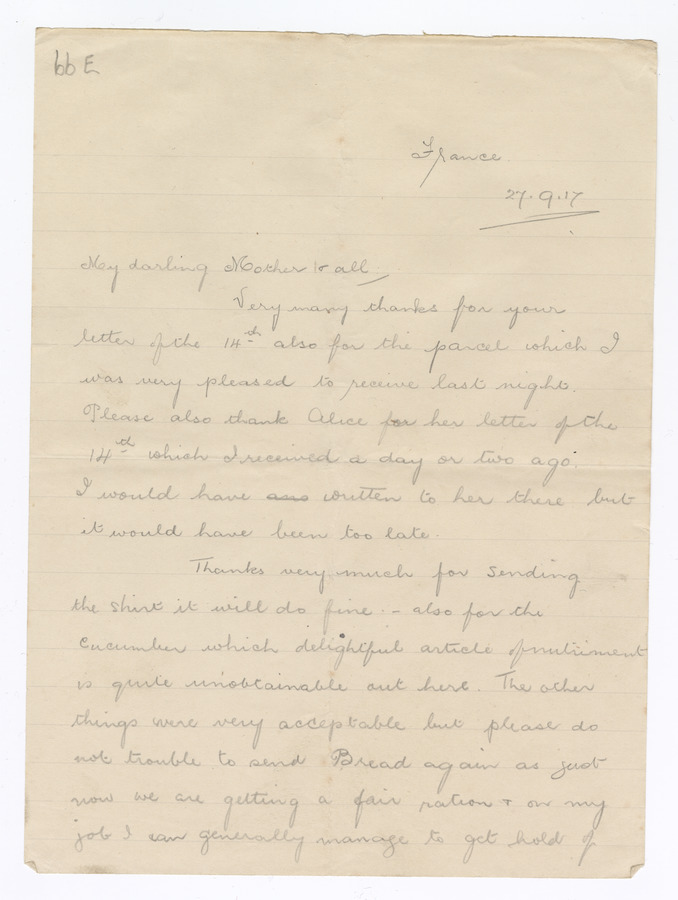 66 E
France.
27.9.17
My darling Mother & all,
Very many thanks for your
letter of the 14th also for the parcel which I
was very pleased to receive last night.
Please also thank Alice for her letter of the
14th which I received a day or two ago.
I would have written to her there but
it would have been too late.
Thanks very much for sending
the shirt it will do fine. - also for the
cucumber which delightful article of nutriment
is quite unobtainable out here. The other
things were very acceptable but please do
not trouble to send Bread again as just
now we are getting a fair ration + on my
job I can generally manage to get hold of